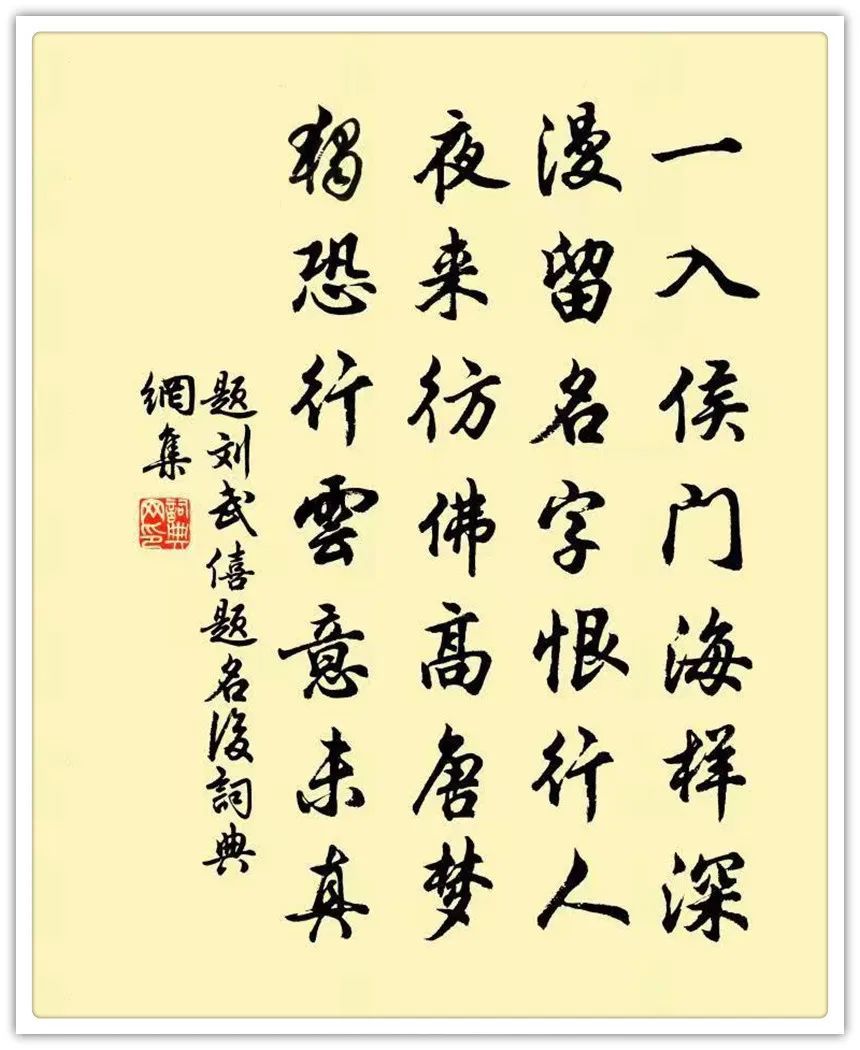 一入侯门海样深
漫留名字恨行人
夜来彷佛高唐梦
独恐行雲意未真
题刘武僖题名後詞典
網集
詞典
网印